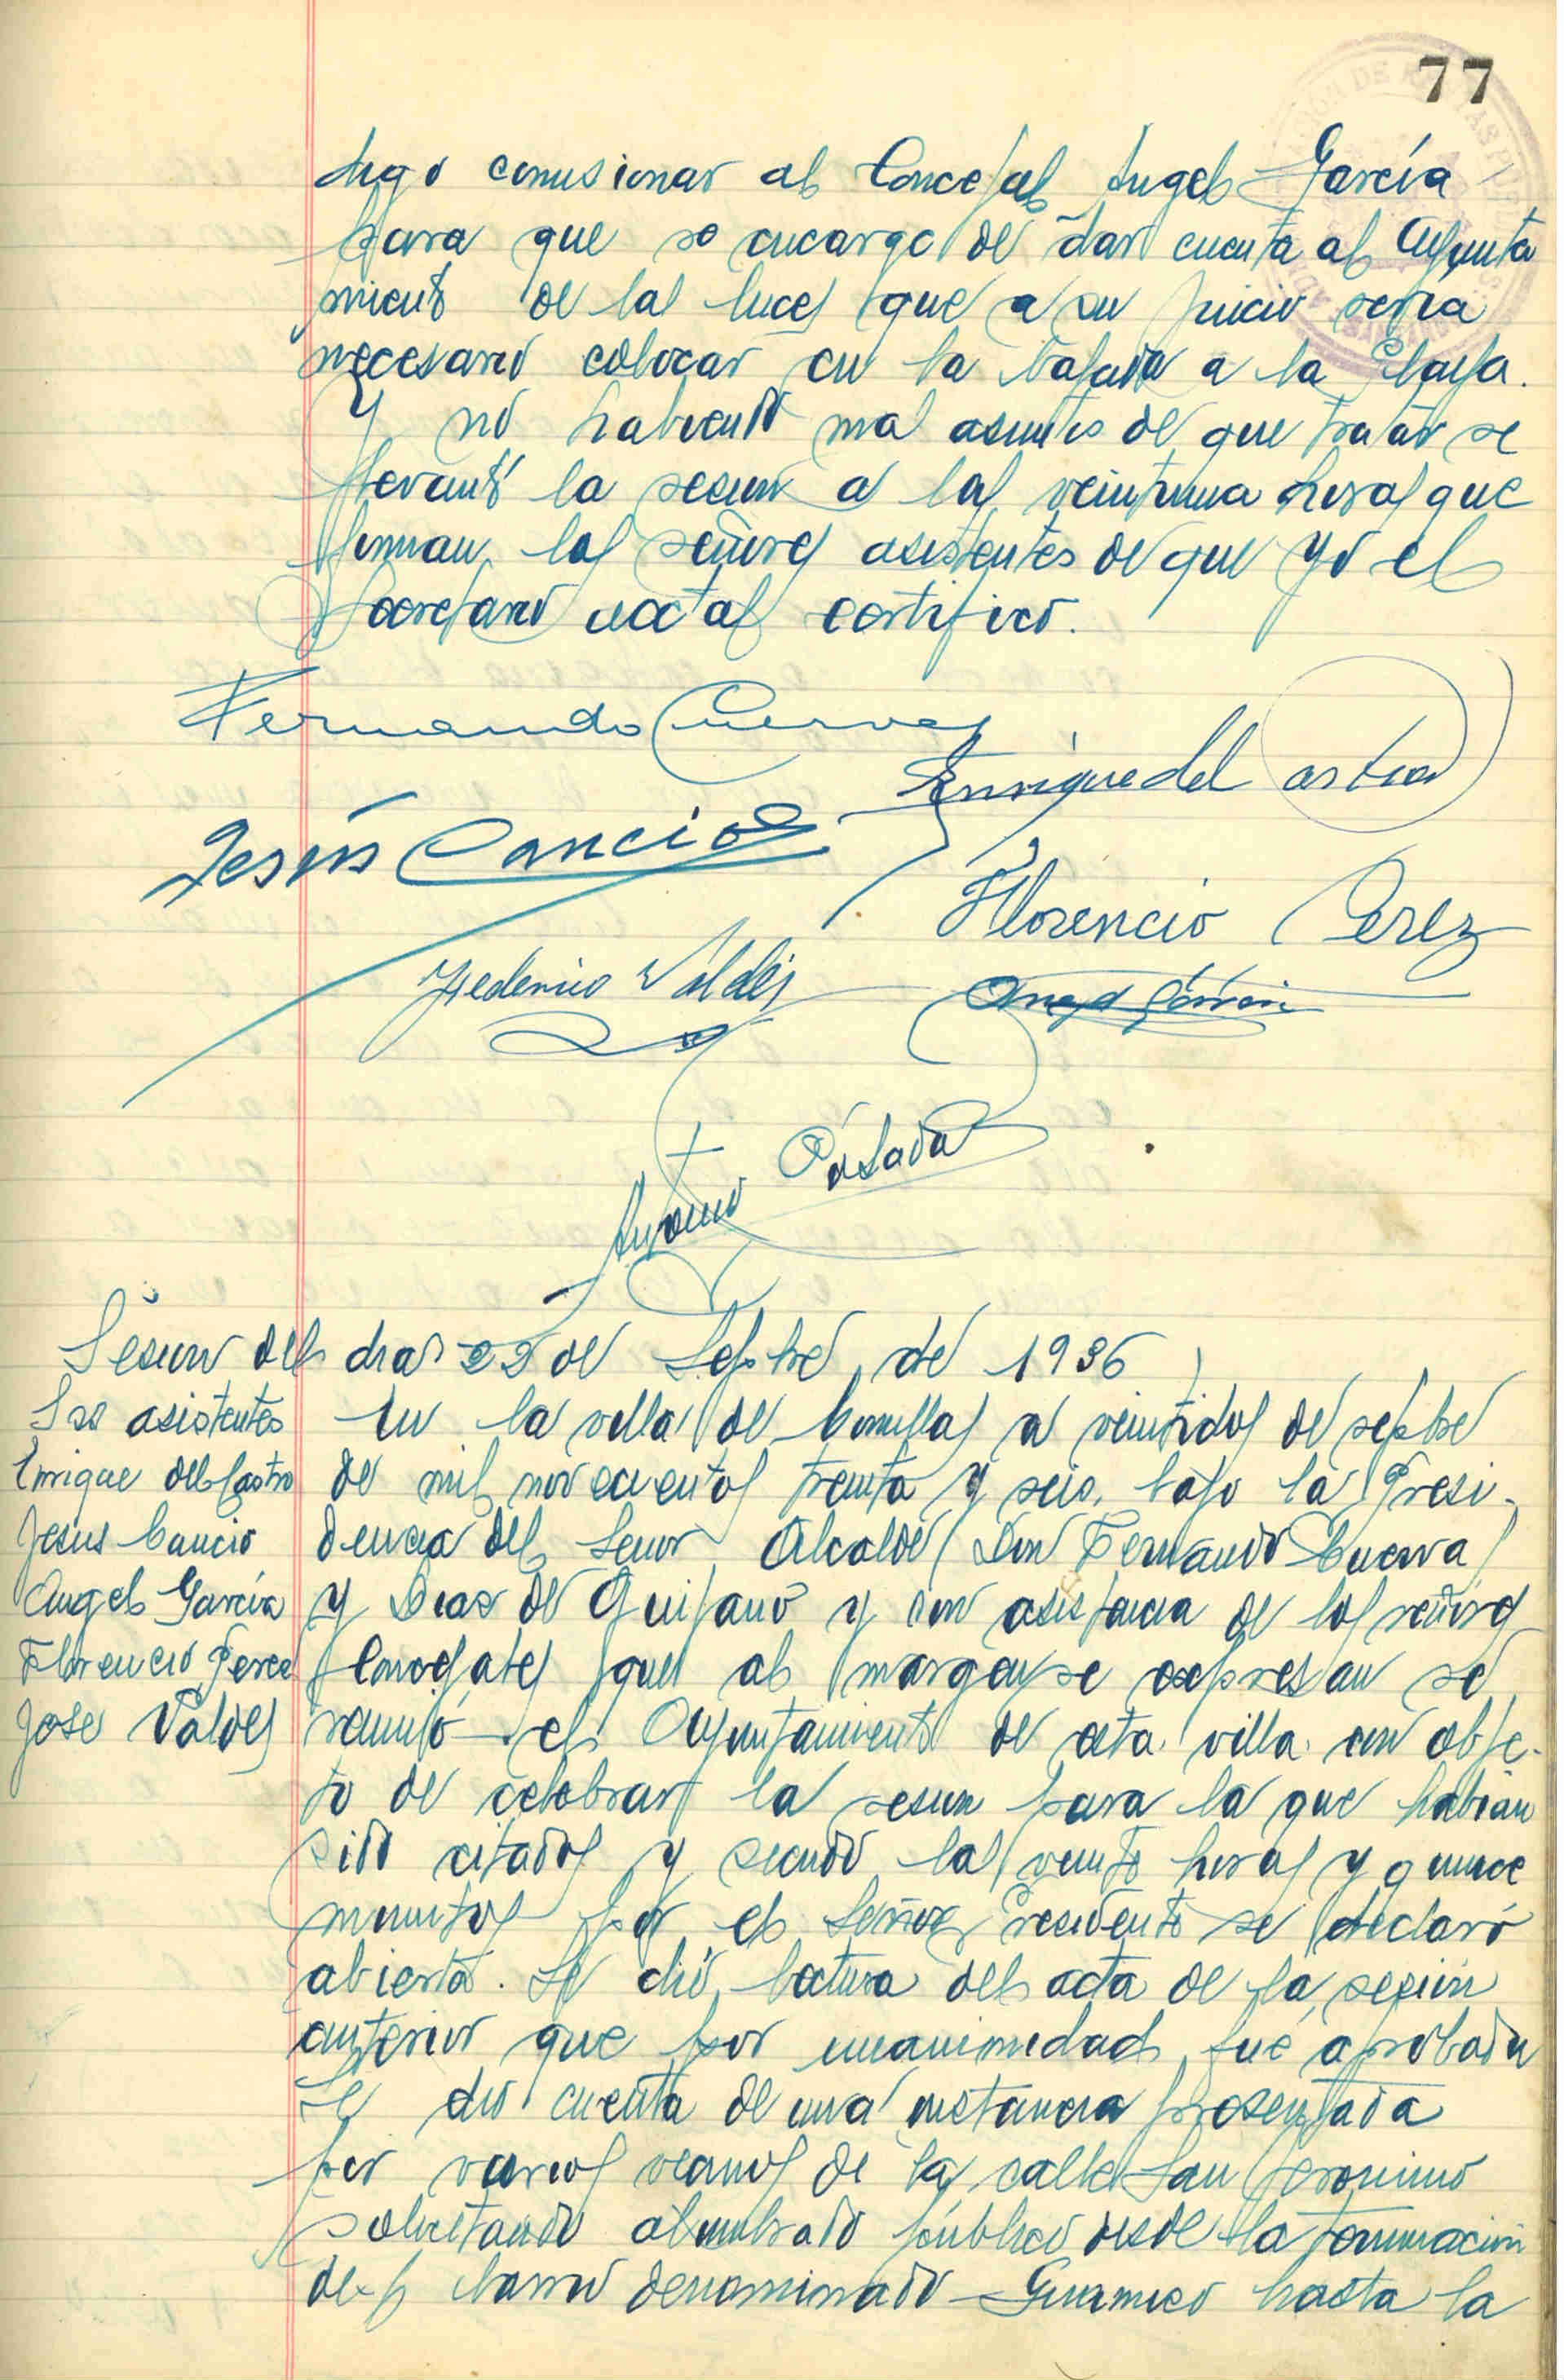 77
luego comisionar al Concejal Angel García
para que se encargo de dar cuenta al Ayunta
miento de las luces que a su juicio sería
necesario colocar en la bajada a la Playa.
Y no habiendo mas asuntos de que tratar se
levantó la sesion a las veintiuna horas que
firman los señores asistentes de que yo el
Secretario acctal certifico.
Fernando Cuerva
Enrique del Castro
Jesús Cancio
Florencio Perez
Federico Valdés
Angel García
Antonio Posada
Sesion del dia 22 de Sepbre de 1936
Sres asistentes
Enrique del Castro
Jesus Cancio
Angel García
Florencio Perez
Jose Valdes
En la villa de Comillas a veintidos de sepbre
de mil novecientos treinta y seis, bajo la Presi-
dencia del Señor Alcalde Don Fernando Cuerva
y Diaz de Quijano y con asistencia de los señores
Concejales que al margen se expresan se
reunió el Ayuntamiento de esta villa con obje-
to de celebrar la sesion para la que habian
sido citados y siendo las veinte horas y quince
minutos por el Señor Presidente se declaró
abierta. Se dió lectura del acta de la sesión
anterior que por unanimidad fué aprobada
Se dio cuenta de una instancia presentada
por varios vecinos de la calle San Jeronimo
solicitando alumbrado público desde la terminacion
del barrio denominado hasta la